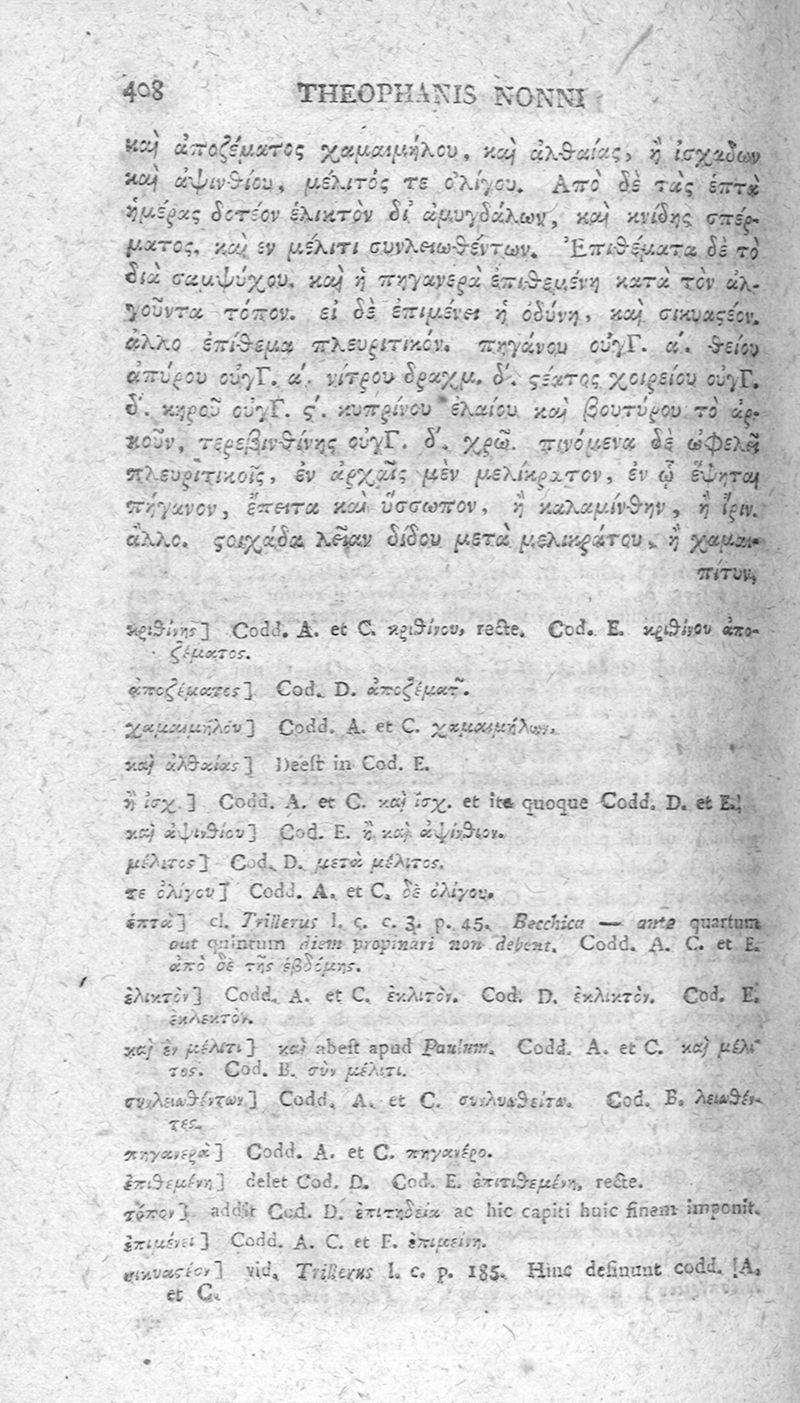 408 THEOPHANIS NONNI
καὶ ἀποζέματος χαμαιμήλου, καὶ ἀλθαίας, ἢ ἰσχάδων
καὶ ἀψινθίου, μέλιτός τε ὀλίγου. Ἀπὸ δὲ τὰς ἑπτὰ
ἡμέρας δοτέον ἑλικτὸν δι' ἀμυγδάλων, καὶ κνίδης σπέρ-
ματος, καὶ ἐν μέλιτι συνλειωθέντων. Ἐπιθέματα δὲ τὸ
διὰ σαμψύχου, καὶ ἡ πηγανερὰ ἐπιθεμένη κατὰ τὸν ἀλ-
γοῦντα τόπον. εἰ δὲ ἐπιμένει ἡ ὀδύνη, καὶ σικυαςέον.
ἄλλο ἐπίθεμα πλευριτικόν. πηγάνου οὐγΓ. α'. θείου
ἀπύρου οὐγΓ. α'. νίτρου δραχμ. δ'. ςέατος χοιρείου οὐγΓ.
δ'. κηροῦ οὐγΓ. ς'. κυπρίνου ἐλαίου καὶ βουτύρου τὸ ἀρ-
κοῦν, τερεβινθίνης οὐγΓ. δ'. χρῶ. πινόμενα δὲ ὠφελεῖ
πλευριτικοῖς, ἐν ἀρχαῖς μὲν μελίκρατον, ἐν ᾧ ἕψηται
πήγανον, ἔπειτα καὶ ὕσσωπον, ἢ καλαμίνθην, ἢ ἶριν.
ἄλλο. ςοιχάδα λείαν δίδου μετὰ μελικράτου, ἢ χαμαι-
πίτυν,
κριθίνης] Codd. A. et C. κριθίνου, recte. Cod. E. κριθίνου ἀπο-
ζέματος.
ἀποζέματος] Cod. D. ἀποζέματ.
χαμαιμήλου] Codd. A. et C. χαμαιμήλων.
καὶ ἀλθαίας] Deest in Cod. E.
ἢ ἰσχ.] Codd. A. et C. καὶ ἰσχ. et ita quoque Codd. D. et E.
καὶ ἀψινθίου] Cod. E. ἢ καὶ ἀψίνθιον.
μέλιτος] Cod. D. μετὰ μέλιτος.
τε ὀλίγου] Codd. A. et C. δὲ ὀλίγου.
ἑπτὰ] cl. Trillerus l. c. c. 3. p. 45. Becchica — ante quartum
aut quintum diem propinari non debent. Codd. A. C. et E.
ἀπὸ δὲ τῆς ἑβδόμης.
ἑλικτὸν] Codd. A. et C. ἐκλιτὸν. Cod. D. ἐκλικτὸν. Cod. E.
ἐκλεκτὸν.
καὶ ἐν μέλιτι] καὶ abest apud Paulum. Codd. A. et C. καὶ μέλι
τος. Cod. B. σὺν μέλιτι.
συνλειωθέντων] Codd. A. et C. Cod. B. λειωθέν-
τες.
πηγανερὰ] Codd. A. et C. πηγανέρο.
ἐπιθεμένη] delet Cod. D. Cod. E. ἐπιτιθεμένη, recte.
τόπον] addit Cod. D. ἐπιτηδεία ac hic capiti huic finem imponit.
ἐπιμένει] Codd. A. C. et E. ἐπιμείνη.
σικυαςέον] vid. Trillerus l. c. p. 185. Hinc desinunt codd. A.
et C.